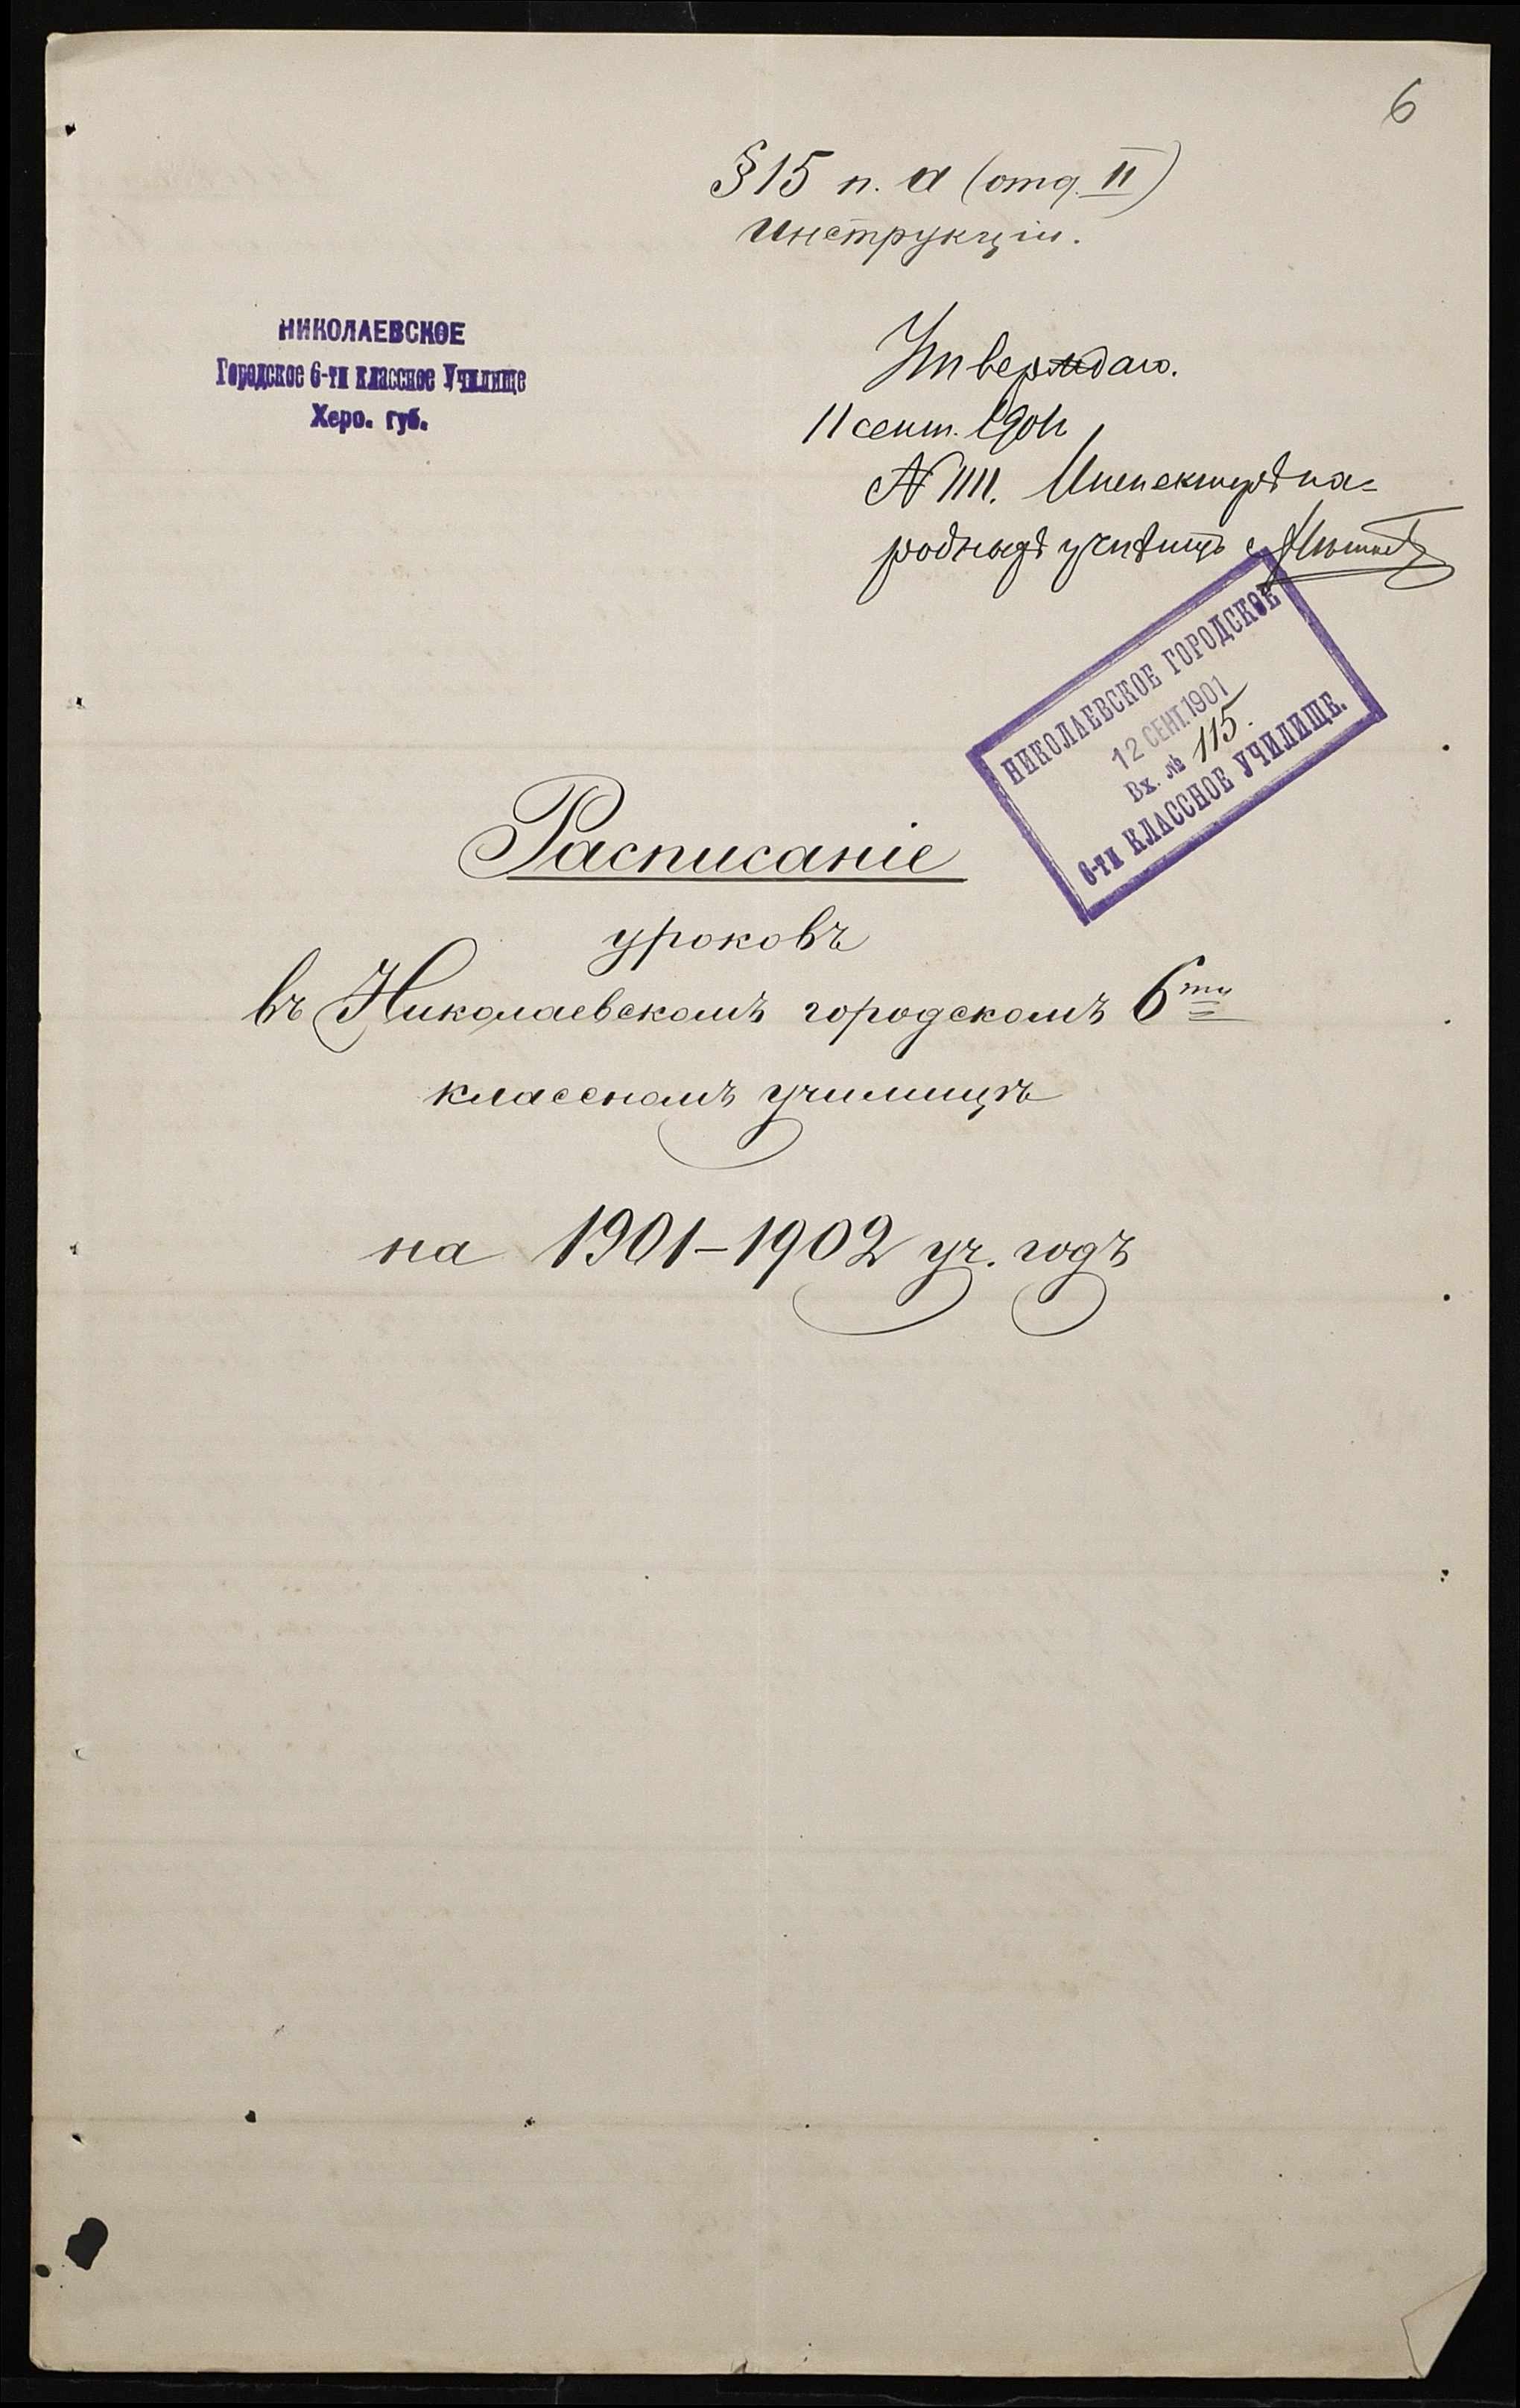 6
§ 15 п. а (отд. II)
Инструкціи.
НИКОЛАЕВСКОЕ
Городское 6-ти классное Училище
Херс. губ.
Утверждаю.
11 сент. 1901 г.
№ 1111. Инспекторъ на=
родныхъ училищъ
НИКОЛАЕВСКОЕ ГОРОДСКОЕ
12 СЕНТ. 1901
Вх. № 115.
6-ти КЛАССНОЕ УЧИЛИЩЕ.
Расписаніе
уроковъ
въ Николаевскомъ городскомъ 6ти
классномъ училищѣ
на 1901–1902 уч. годъ